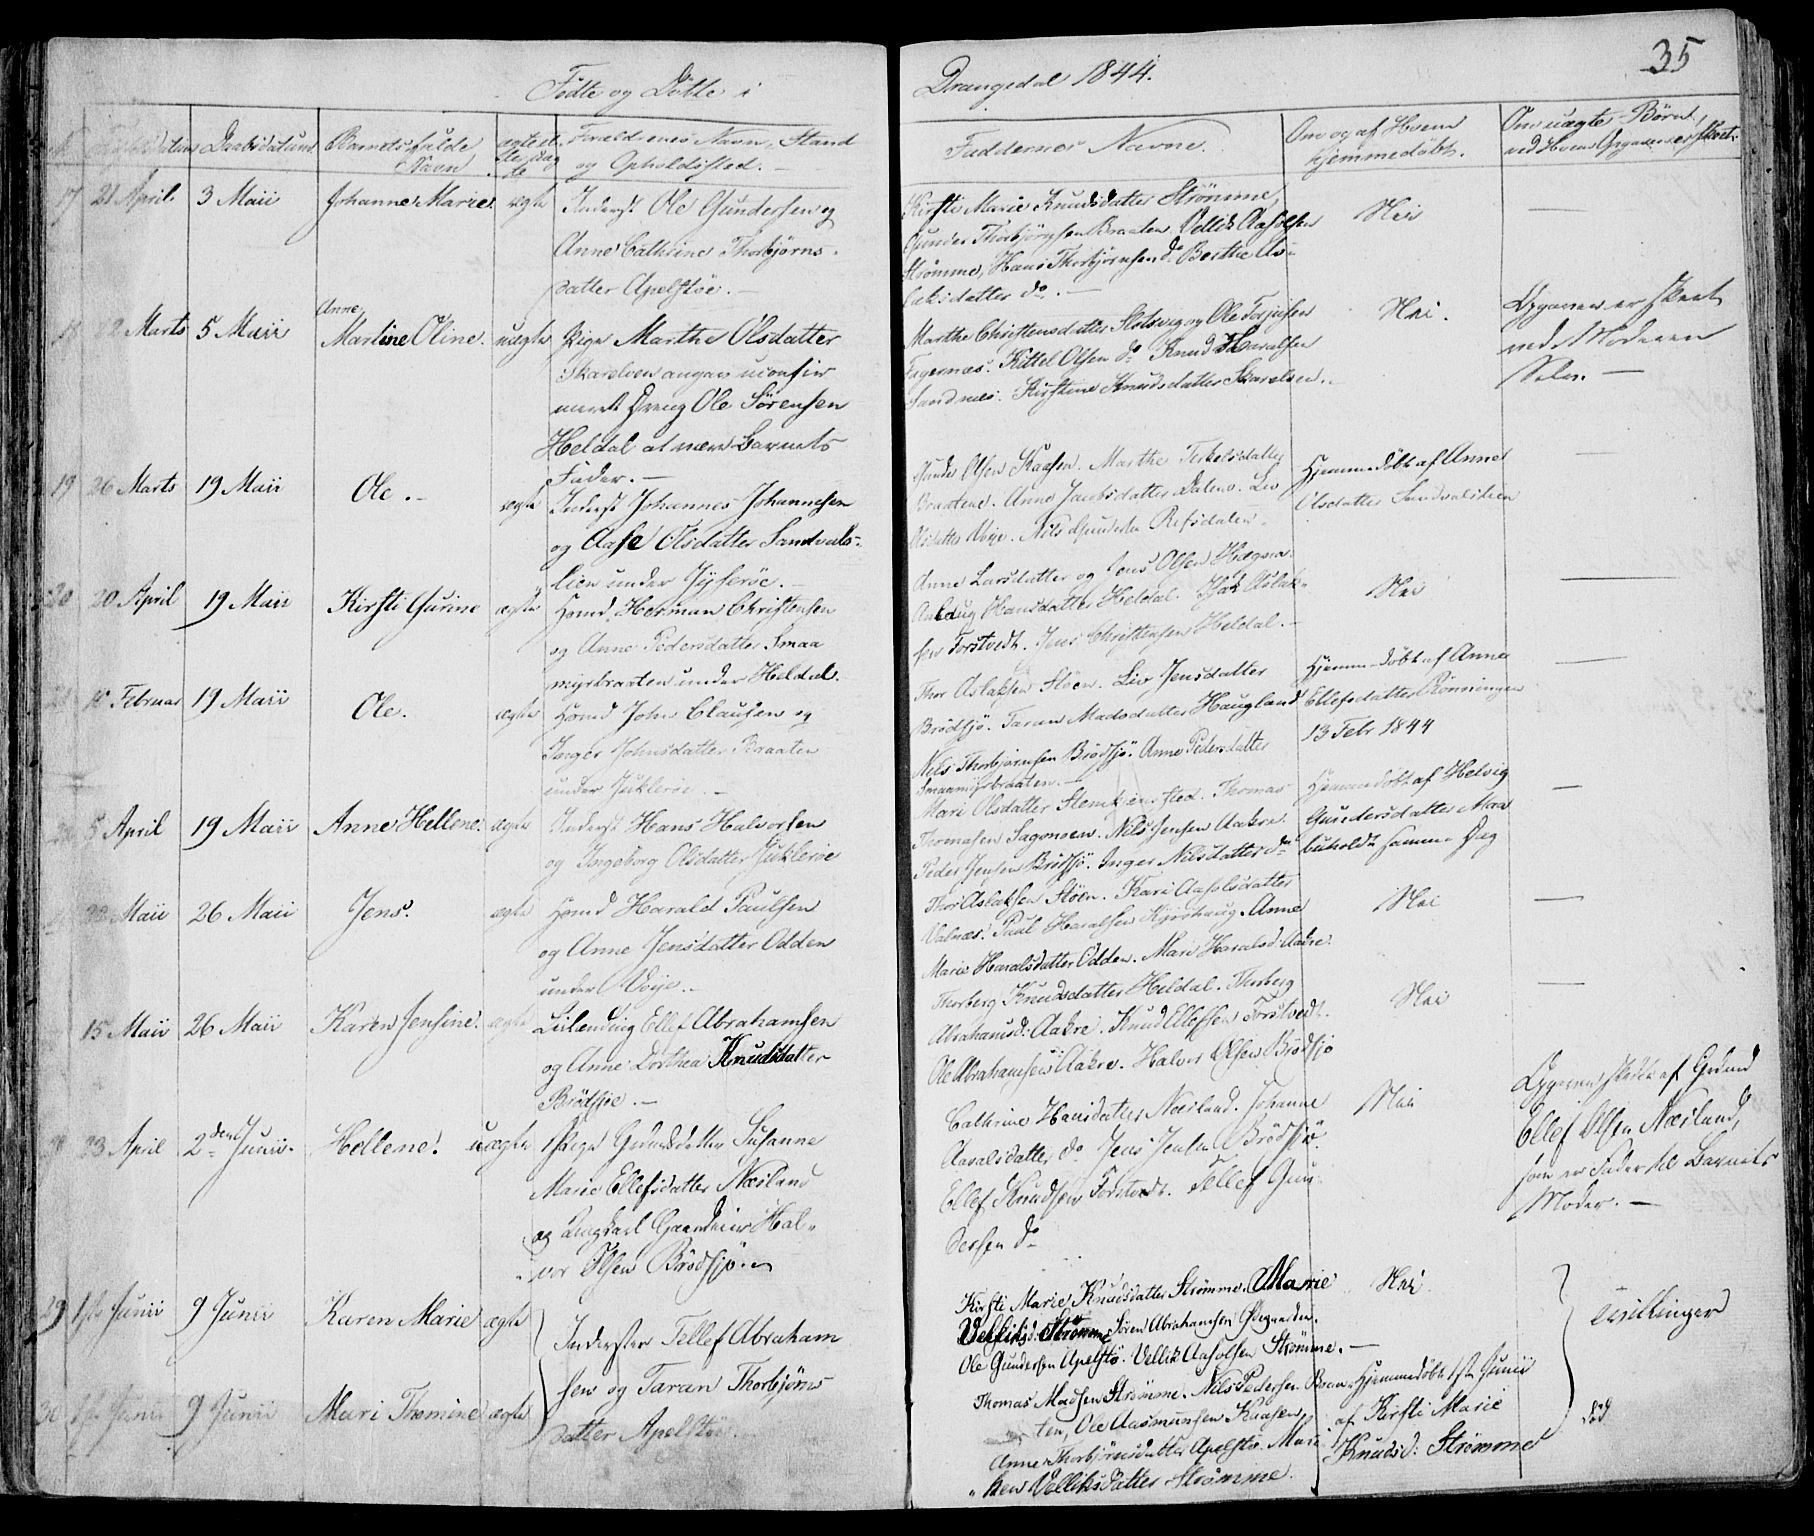 35
Födte og Döbte i Drangedal 1844.
Daabsdatum Barnets fulde Navn Forældrenes Navn, Stand og Opholdssted. Faddernes Navne. Om og af Hvem hjemmedøbt. Om uægte Børn,
17 21 April 3 Maii Johanne Marie. ægte Inderst Ole Gundersen og
Anne Cathrine Thorbjørns-
datter Apelstöe.
Kirsti Marie Knudsdatter Strömme,
Gunder Thorbjörnsen Braaten. Vellik Aasolfsen
Strömme, Hans Thorbjørnsen do. Berthe As-
laksdatter do.
Nei
22 Marts 5 Maii Anne
Martine Oline. uægte Pige Marthe Olsdatter
Skarelven angav uconfir
meret Dreng Ole Sörensen
Heldal at være Barnets
Fader.
Marthe Christensdatter og Ole
Fagernæs. Kittel Olsen do. Knud Haralsen
Sandnæs. Kirstine Knudsdatter Skarelven.
Nei.
Opgaven er skeet
ved Moderen
Selv.
19 26 Marts 19 Maii Ole. ægte Inderst Johannes Johannesen
og Aase Olsdatter Sandvals-
lien under
Gunder Olsen Kaasen. Marthe Terkelsdatter
Anne Jacobsdatter Dalene. Liv
Olsdatter Voje. Nils Gundersen Refsdalen.
Hjemmedöbt af Anne
Olsdatter Sandvalslien
20 20 April 19 Maii Kirsti Gurine ægte Huusmd Herman Christensen
og Anne Pedersdatter Smaa
myrbraaten under Heldal.
Anne Larsdatter og Jens Olsen
Aslaug Hansdatter Heldal. Isak Aslak-
sen Forstvedt. Jens Christensen Heldal.
Nei
Februar 19 Maii Ole. ægte Huusmd John Clausen og
Inger Johnsdatter Braaten
under Juklerøe.
Thor Aslaksen Stöen. Liv Jensdatter
Brödsjö. Taran Madsdatter Haugland
Nils Thorbjørnsen Brödsjö. Anne Pedersdatter
Smaamyrbraaten.
Hjemmedöbt af Anne
Ellefsdatter Rönningen
13 Febr 1844
5 April 19 Maii Anne Hellene. ægte Inderst Hans Halvorsen
og Ingeborg Olsdatter Juklerøe
Mari Olsdatter Thomas
Thomasen Sagmoen. Nils Jensen Aakre.
Peder Jensen Brödsjö. Inger Nilsdatter do
Hjemmedöbt af Helvig
Gundersdatter Moe
samme Dag
Maii 26 Maii Jens. ægte Huusmd Harald Paulsen
og Anne Jensdatter Odden
under Voje.
Thor Aslaksen Stöen. Kari Aasolsdatter
Valnæs. Paul Haralsen Kjöshaug. Anne
Marie Haralsdatter Odden. Mari Haralsd: Aakre.
Nei
15 Maii 26 Maii Karen Jensine. ægte Leilending Ellef Abrahamsen
og Anne Dorthea Knudsdatter
Brödsjøe.
Thorberg Knudsdatter Heldal. Thorberg
Abrahamsd: Aakre. Knud Ellefsen Forstvedt.
Ole Abrahamsen Aakre. Halvor Olsen Brödsjö
Nei
23 April 2den Junii. Hellene. uægte Pige
Marie Ellefsdatter Næsland
og Ungkarl Gaardeier Hal-
vor Olsen Brödsjö.
Cathrine Hansdatter Næsland. Johanne
Aasolsdatter do. Jens Jensen Brödsjö.
Ellef Knudsen Forstvedt. Tellef Gun-
dersen do
Nei
Opgaven skedte af
Ellef Olsen Næsland,
som er Fader til Barnets
Moder.
29 1ste Junii 9 Junii Karen Marie ægte Inderster Tellef Abraham
sen og Taran Thorbjörns
datter Apelstöe.
Kirsti Marie Knudsdatter Strömme. Marie
Velliksd: Strömme Sören Abrahamsen
Ole Gundersen Apelstö. Vellik Aasolsen Strömme.
Nei
Tvillinger
30 1ste Junii 9 Junii Mari Thomine ægte
Thomas Madsen Strömme. Nils Pedersen Braa-
ten, Ole Aasmunsen Kaasen,
Anne Thorbjörnsdatter Apelstö. Mari
Velliksdatter Strömme.
Hjemmedöbt 1ste Junii
af Kirsti Marie
Knudsd: Strömme
död